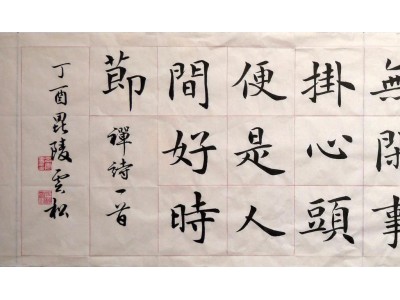 無閑事
掛心頭
便是人
間好時
節
禪詩一首
丁酉毘陵雲松